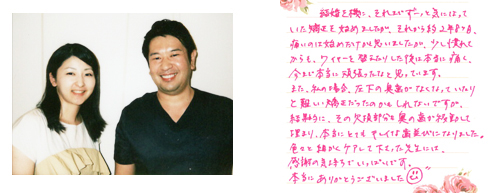 結婚を機に、それまでずーっと気になって
いた矯正を始めましたが、それから約2年8ヶ月、
痛いのは始めだけかと思いましたが、少し慣れて
からも、ワイヤーを替えたりした後は本当に痛く、
今まで本当に頑張ったなと思っています。
また、私の場合、左下の奥歯がなくなっていたり
と難しい矯正だったのかもしれないですが、
結果的に、その欠損部分も奥の歯が移動して
埋まり、本当にとてもキレイな歯並びになりました。
色々と細かくケアして下さった先生には、
感謝の気持ちでいっぱいです。
本当にありがとうございました